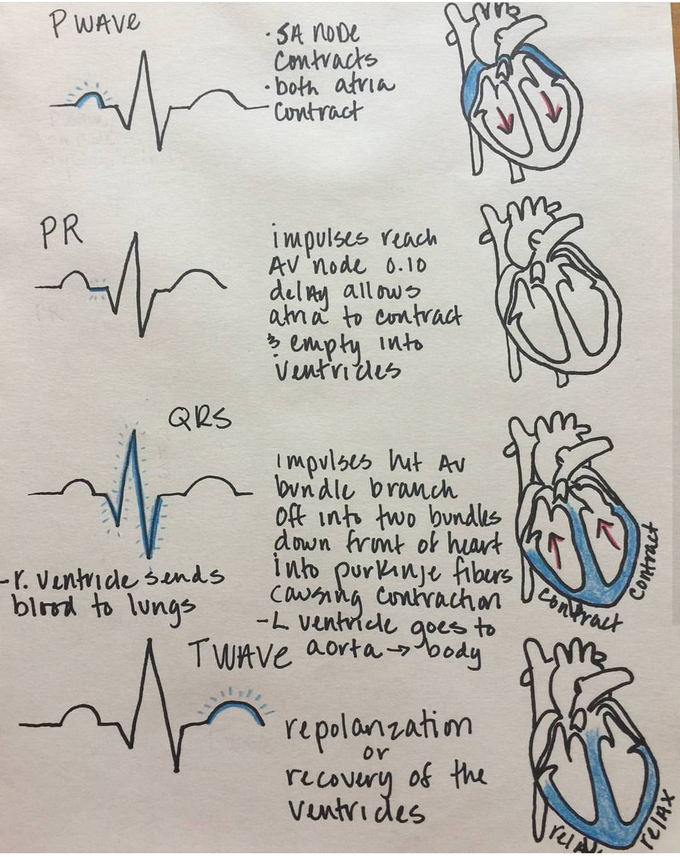 P WAVE
• SA NODE
contracts
• both atria
contract
PR
impulses reach
AV node 0.10
delay allows
atria to contract
& empty into
ventricles
QRS
impulses hit AV
bundle branch
off into two bundles
down front of heart
into purkinje fibers
causing contraction
- L ventricle goes to
aorta → body
contract
contract
- r. ventricle sends
blood to lungs
T WAVE
repolarization
or
recovery of the
ventricles
relax
relax